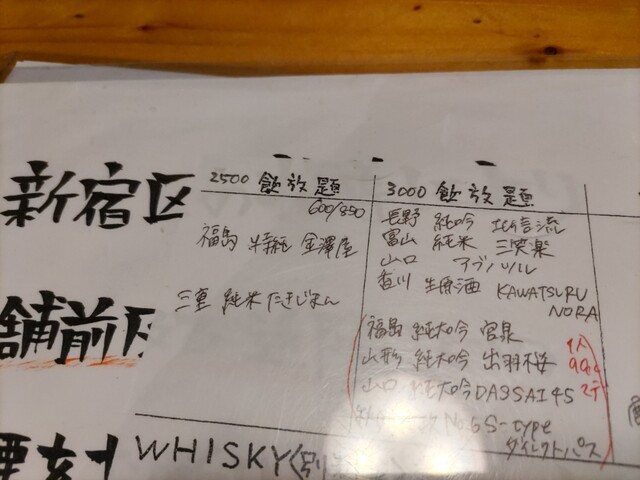 新宿区
2500 飲放題
600/850
福島 特純 金澤屋
三重 純米 たきじまん
3000 飲放題
長野 純吟 北信流
富山 純米 三笑楽
山口 アブノツル
香川 生原酒 KAWATSURU
NORA
福島 純大吟 宮泉
山形 純大吟 出羽桜
山口 純大吟 DASSAI 45
1人
No.6 S-type
ダイレクトパス
舗前
WHISKY